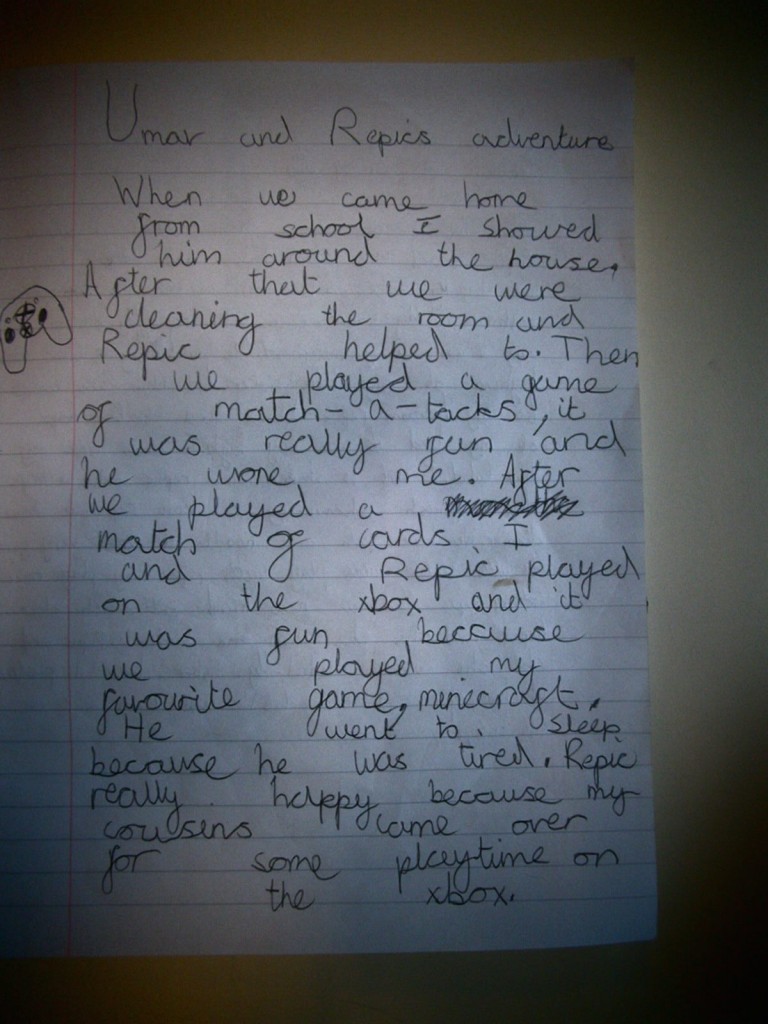 Umar and Repics adventure
When we came home
from school I showed
him around the house.
After that we were
cleaning the room and
Repic helped to. Then
we played a game
of match-a-tacks, it
was really fun and
he wone me. After
we played a
match of cards I
and Repic played
on the xbox and it
was fun because
we played my
favourite game, minecraft.
He went to. sleep
because he was tired. Repic
really happy because my
cousens came over
for some playtime on
the xbox.